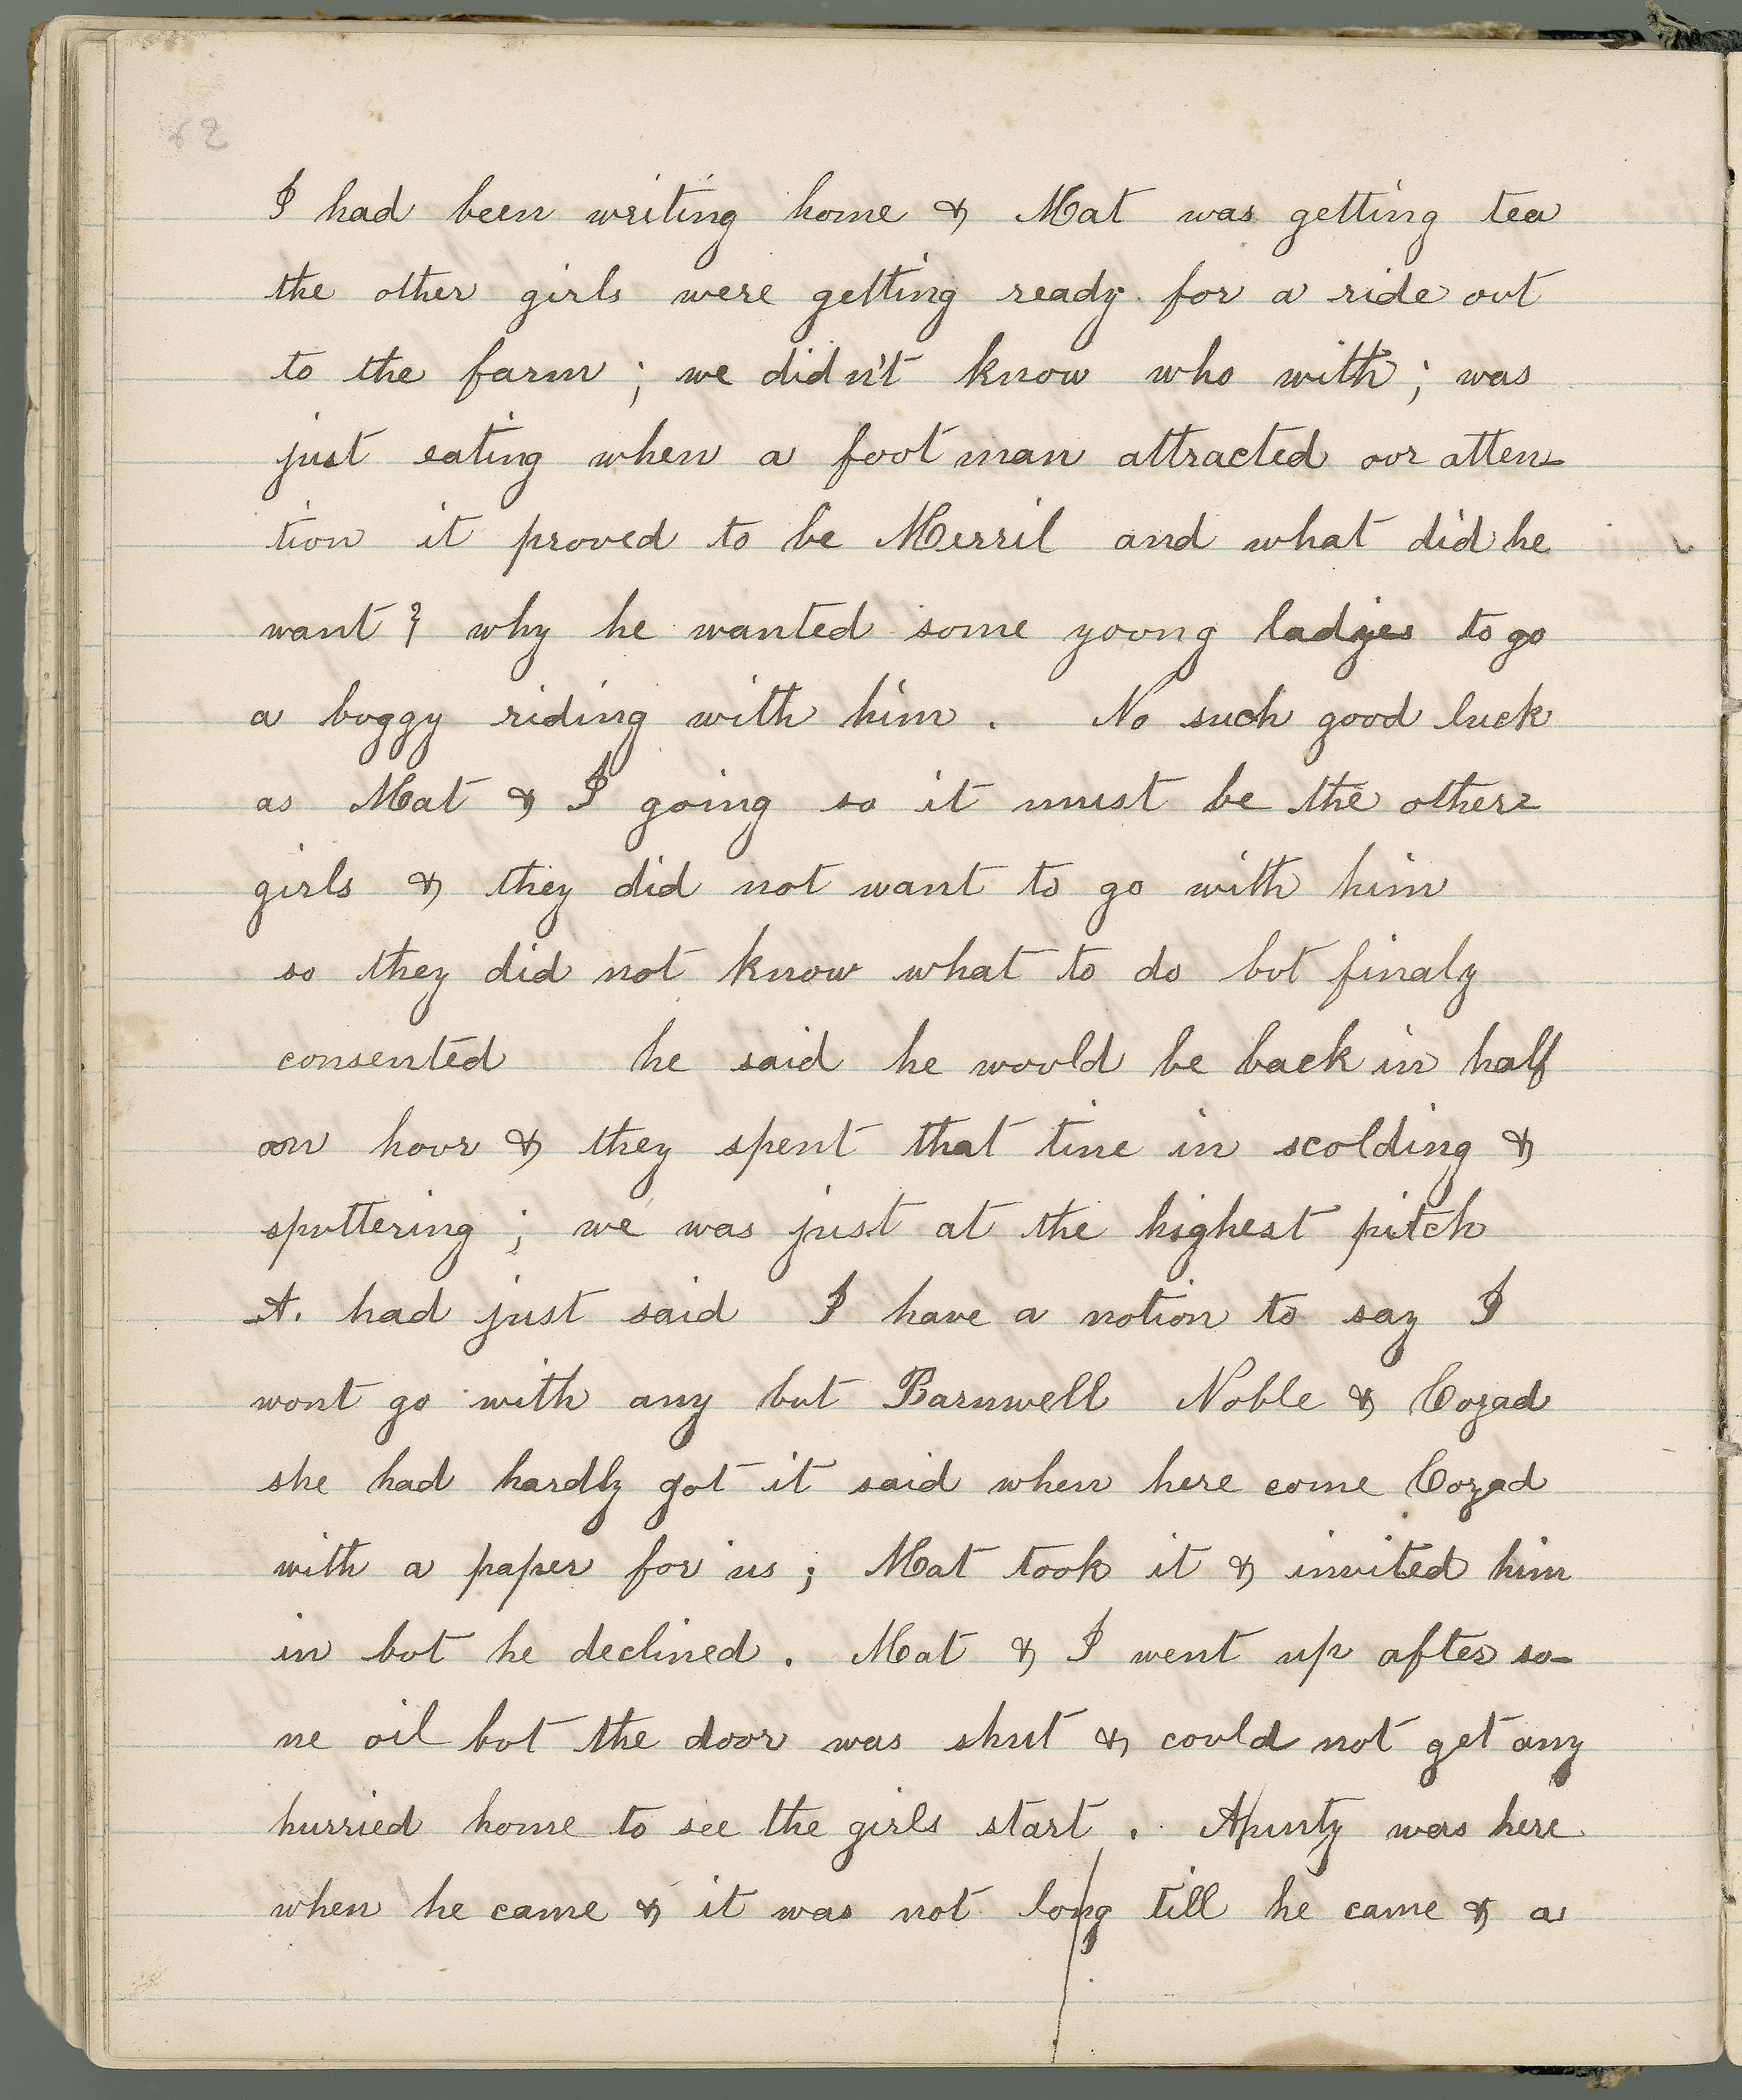 62
I had been writing home & Mat was getting tea
the other girls were getting ready for a ride out
to the farm ; we didn't know who with ; was
just eating when a foot man attracted our atten-
tion it proved to be Merril and what did he
want ? why he wanted some young ladyes to go
a buggy riding with him . No such good luck
as Mat & I going so it must be the other
girls & they did not want to go with him
so they did not know what to do but finaly
consented he said he would be back in half
an hour & they spent that tine in scolding &
sputtering ; we was just at the highest pitch
A. had just said I have a notion to say I
wont go with any but Barnwell Noble & Cozad
she had hardly got it said when here come Cozad
with a paper for us ; Mat took it & invited him
in but he declined . Mat & I went up after so-
me oil but the door was shut & could not get any
hurried home to see the girls start . was here
when he came & it was not long till he came & a